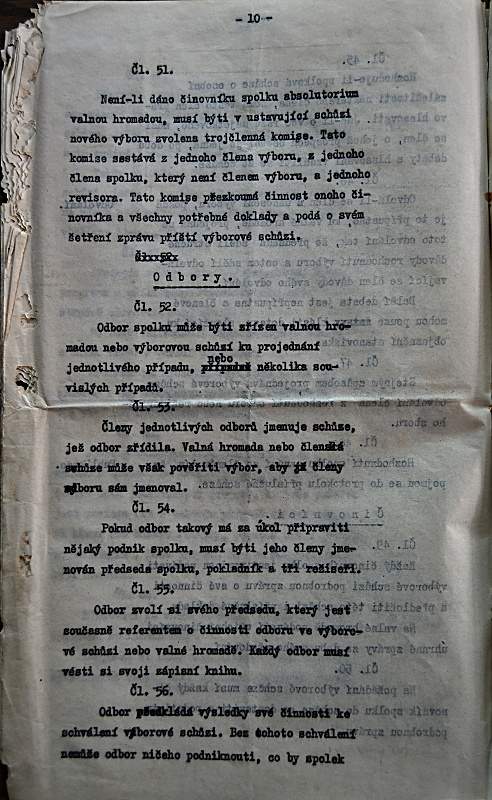 - 10 -
Čl. 51.
Není-li dáno činovníku spolku absolutorium
valnou hromadou, musí býti v ustavující schůzi
nového výboru zvolena trojčlenná komise. Tato
komise sestává z jednoho člena výboru, z jednoho
člena spolku, který není členem výboru, a jednoho
revisora. Tato komise přezkoumá činnost onoho či-
novníka a všechny potřebné doklady a podá o svém
šetření zprávu příští výborové schůzi.
Odbory.
Čl. 52.
Odbor spolku může býti zřízen valnou hro-
madou nebo výborovou schůzí ku projednání
nebo
jednotlivého případu, několika sou-
vislých případů.
Čl. 53.
Členy jednotlivých odborů jmenuje schůze,
jež odbor zřídila. Valná hromada nebo členská
schůze může však pověřiti výbor, aby členy
výboru sám jmenoval.
Čl. 54.
Pokud odbor takový má za úkol připraviti
nějaký podnik spolku, musí býti jeho členy jme-
nován předseda spolku, pokladník a tři režiseři.
Čl. 55.
Odbor zvolí si svého předsedu, který jest
současně referentem o činnosti odboru ve výboro-
vé schůzi nebo valné hromadě. Každý odbor musí
vésti si svoji zápisní knihu.
Čl. 56.
Odbor předkládá výsledky své činnosti ke
schválení výborové schůzi. Bez tohoto schválení
nemůže odbor ničeho podniknouti, co by spolek